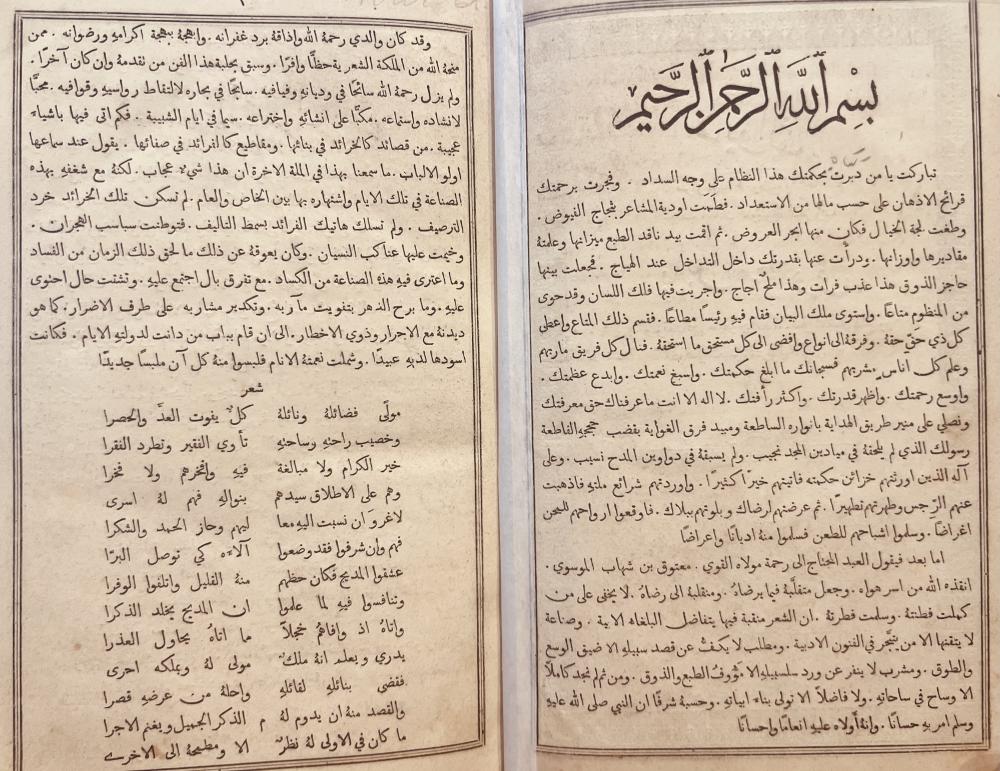 بِسْمِ ٱللَّهِ ٱلرَّحْمٰنِ ٱلرَّحِيمِ
تباركت يا من دَبَّرتَ بحكمتك هذا النظام على وجه السداد . وفجرت برحمتك
قرائح الاذهان على حسب مالها من الاستعداد . فطَمَت اودية المشاعر بثجاج الفيوض .
وطغت لجة الخيال فكان منها ابحر العروض . ثم اقمت بيد ناقد الطبع ميزانها وعلمتهُ
مقاديرها واوزانها . ودرأت عنها بقدرتك داخل التداخل عند الهياج . فجعلت بينها
حاجز الذوق هذا عذب فرات وهذا ملحٌ اجاج . واجريت فيها فلك اللسان وقد حوى
من المنظوم متاعًا . واستوى ملك البيان فقام فيهِ رئيسًا مطاعًا . فقسم ذلك المتاع واعطى
كل ذي حق حقهُ . وفرقهُ الى انواع وافضى الى كل مستحق ما استحقهُ . فنال كل فريق مآربهم
وعلم كل اناس مشربهم فسبحانك ما ابلغ حكمتك . واسبغ نعمتك . وابدع عظمتك .
واوسع رحمتك . واظهر قدرتك . واكثر رأفتك . لا اله الا انت ما عرفناك حق معرفتك
ونصلي على منير طريق الهداية بانواره الساطعة ومبيد فرق الغواية بقضب حججهِ القاطعة
رسولك الذي لم يلحقهُ في ميادين المجد نجيب . ولم يسبقهُ في دواوين المدح نسيب . وعلى
آلهِ الذين اورثتهم خزائن حكمته فآتيتهم خيرًا كثيرًا . واوردتهم شرائع ملتهِ فاذهبت
عنهم الرجس وطهرتهم تطهيرًا . ثم عرضتهم لرضاك وبلوتهم ببلاك . فاوقعوا ارواحهم للمحن
اغراضًا . وسلموا اشباحهم للطعن فسلموا منهُ اديانًا واعراضًا
اما بعد فيقول العبد المحتاج الى رحمة مولاه القوي . معتوق بن شهاب الموسوي .
انقذه الله من اسر هواه . وجعل متقلبهُ فيما يرضاهُ . ومنقلبهُ الى رضاهُ . لا يخفى على من
كملت فطنتهُ . وسلمت فطرتهُ . ان الشعر منقبة فيها يتفاضل البلغاء الابية . وصناعة
لا يتقنها الا من يتبحر في الفنون الادبية . ومطلب لا يكفُّ عن قصد سبيلهِ الا ضيق الوسع
والطوق . ومشرب لا ينفر عن ورد سلسبيلهِ الا مَؤُوفُ الطبع والذوق . ومن ثم لم نجد كاملًا
الا وساح في ساحاته . ولا فاضلًا الا تولى بناء ابياته . وحسبهُ شرفًا ان النبي صلى الله عليهِ
وسلم امر بهِ حسانًا . وانهُ أولاه عليهِ انعامًا واحسانًا
وقد كان والدي رحمهُ الله واذاقهُ برد غفرانه . وابهجهُ ببهجة اكرامهِ ورضوانه . ممن
منحهُ الله من الملكة الشعرية حظًّا وافرًا . وسبق بحلبة هذا الفن من تقدمهُ وان كان آخرًا .
ولم يزل رحمهُ الله سائحًا في وديانهِ وفيافيه . سابحًا في بحاره لالتقاط رواسيهِ وقوافيه . محبًّا
لانشاده واستماعه . مكبًّا على انشائهِ واختراعه . سيما في ايام الشبيبة . فكم اتى فيها باشياء
عجيبة . من قصائد كالخرائد في بنائها . ومقاطيع كالفرائد في صفائها . يقول عند سماعها
اولو الالباب . ما سمعنا بهذا في الملة الاخرة ان هذا شيءٌ عجاب . لكنهُ مع شغفهِ بهذه
الصناعة في تلك الايام واشتهاره بها بين الخاص والعام . لم تسكن تلك الخرائد خرد
الترصيف . ولم تسلك هاتيك الفرائد بسمط التاليف . فتوطنت سباسب الهجران .
وخيمت عليها عناكب النسيان . وكان يعوقهُ عن ذلك ما لحق ذلك الزمان من الفساد
وما اعترى فيهِ هذه الصناعة من الكساد . مع تفرق بال اجتمع عليهِ . وتشتت حال احتوى
عليه . وما برح الدهر بتفويت مآربه . وتكدير مشاربه على طرف الاضرار . كما هو
ديدنهُ مع الاحرار وذوي الاخطار . الى ان قام بباب من دانت لدولتهِ الايام . فكانت
اسودها لديهِ عبيدًا . وشملت نعمتهُ الانام فلبسوا منهُ كل آن ملبسًا جديدًا
شعر
مولًى فضائلهُ ونائلهُ كلٌّ يفوت العدَّ والحصرا
وخصيب راحتهِ وساحتهِ تأوي الفقير وتطرد الفقرا
خير الكرام ولا مبالغة فيهِ وافخرهم ولا فخرا
وهم على الاطلاق سيدهم بنوالهِ فهم لهُ اسرى
لا غروَ ان نسبت اليهِ معا ليهم وحاز الحمد والشكرا
فهم وان شرفوا فقد وضعوا آلاءه كي توصل البرّا
عشقوا المديح فكان حظهم منهُ القليل واتلفوا الوفرا
وتنافسوا فيهِ لما علموا ان المديح يخلد الذكرا
واتاهُ اذ وافاهُ خجلًا ما اتاهُ يحاول العذرا
يدري ويعلم انهُ ملكٌ مولى لهُ وبملكه احرى
فقضى بنائلهِ لقائلهِ واحلهُ من عرضهِ قصرا
والقصد منهُ ان يدوم لهُ م الذكر الجميل ويغنم الاجرا
ما كان في الاولى لهُ نظرٌ الا ومطمحهُ الى الاخرى